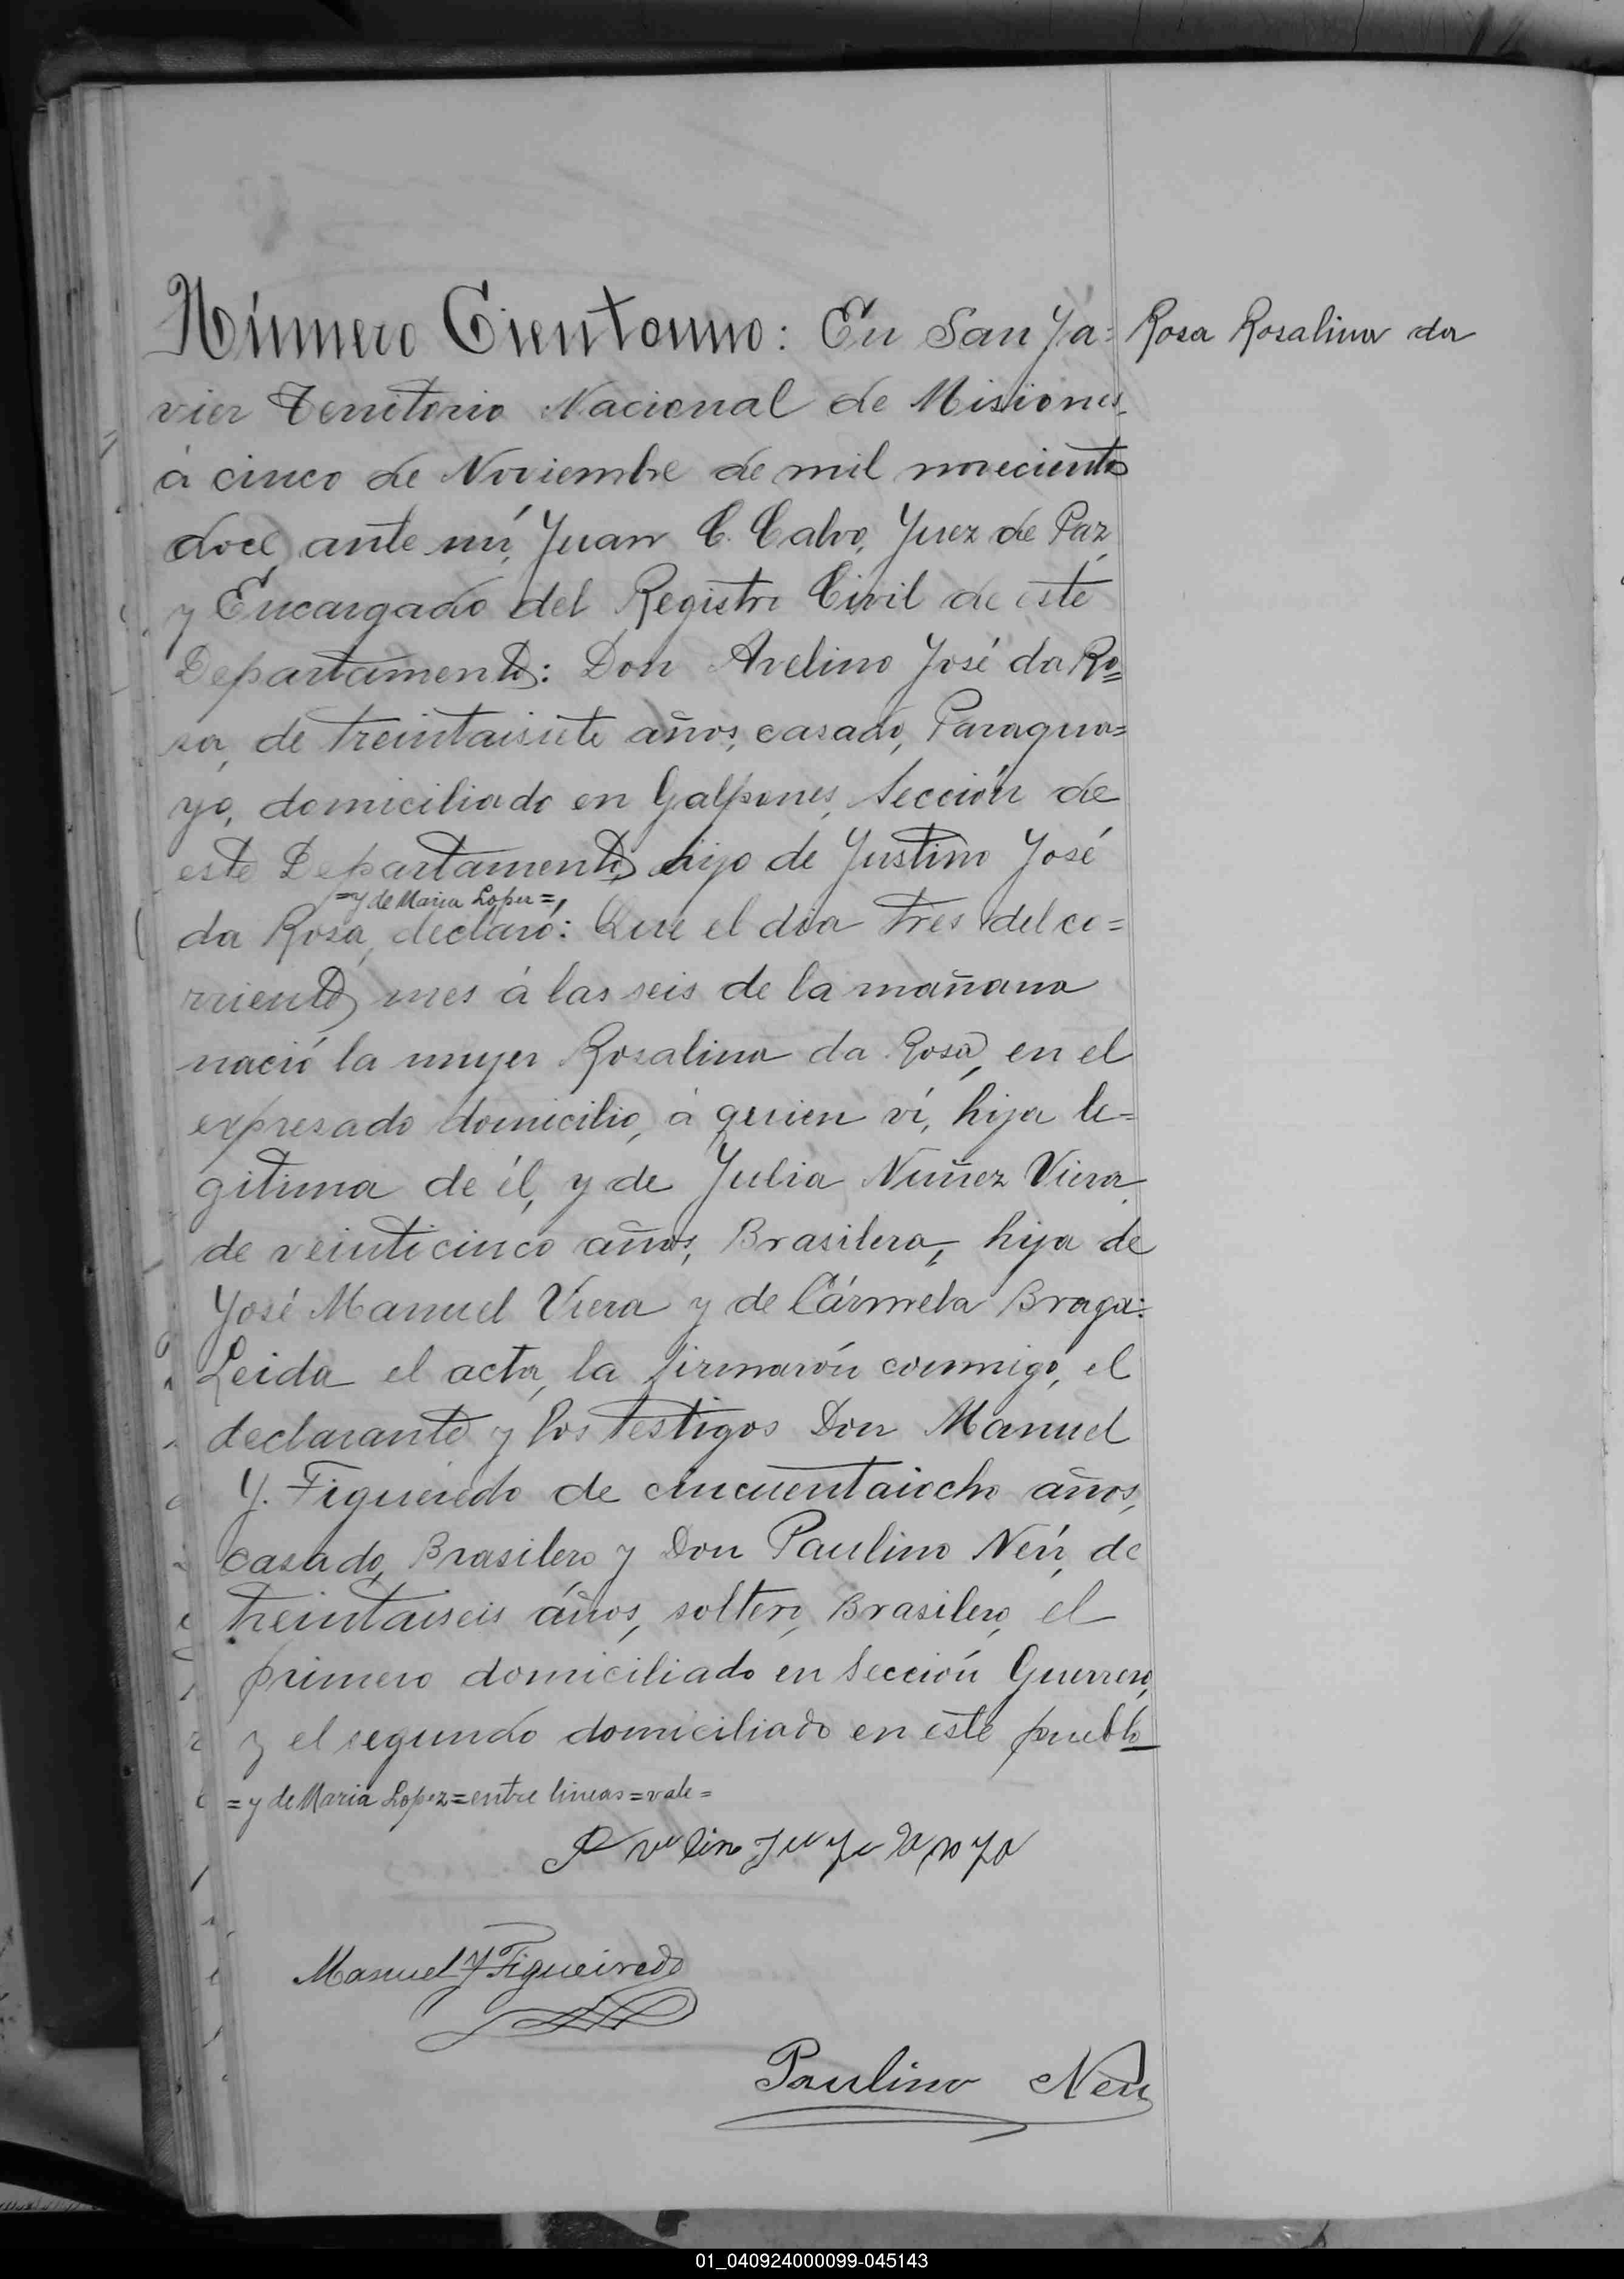 Número Cientouno: En San Ja=
Rosa Rosalina da
vier Territorio Nacional de Misiones
á cinco de Noviembre de mil novecientos
doce, ante mí, Juan C. Calvo, Juez de Paz,
y Encargado del Registro Civil de este
Departamento: Don Avelino José da Ro=
sa, de treintaisiete años, casado, Paragua=
yo, domiciliado en Galpones, Sección de
este Departamento, hijo de Justino José
=y de Maria Lopez=,
da Rosa, declaró: Que el dia tres del co=
rriente, mes á las seis de la mañana
nació la mujer Rosalina da Rosa, en el
expresado domicilio, á quien ví, hija le=
gitima de él, y de Julia Nuñez Viera,
de veinticinco años, Brasilera, hija de
José Manuel Viera y de Cármela Braga:
Leida el acta, la firmarón conmigo, el
declarante y los testigos Don Manuel
Y. Figueiredo de cincuentaiocho años,
casado, Brasilero y Don Paulino Neú, de
treintaiseis años, soltero, Brasilero, el
primero domiciliado en Sección Guerrero,
y el segundo domiciliado en este pueblo
=y de Maria Lopez=entre lineas=vale=
Manuel Y Figueiredo
Paulino Neu
01_040924000099-045143